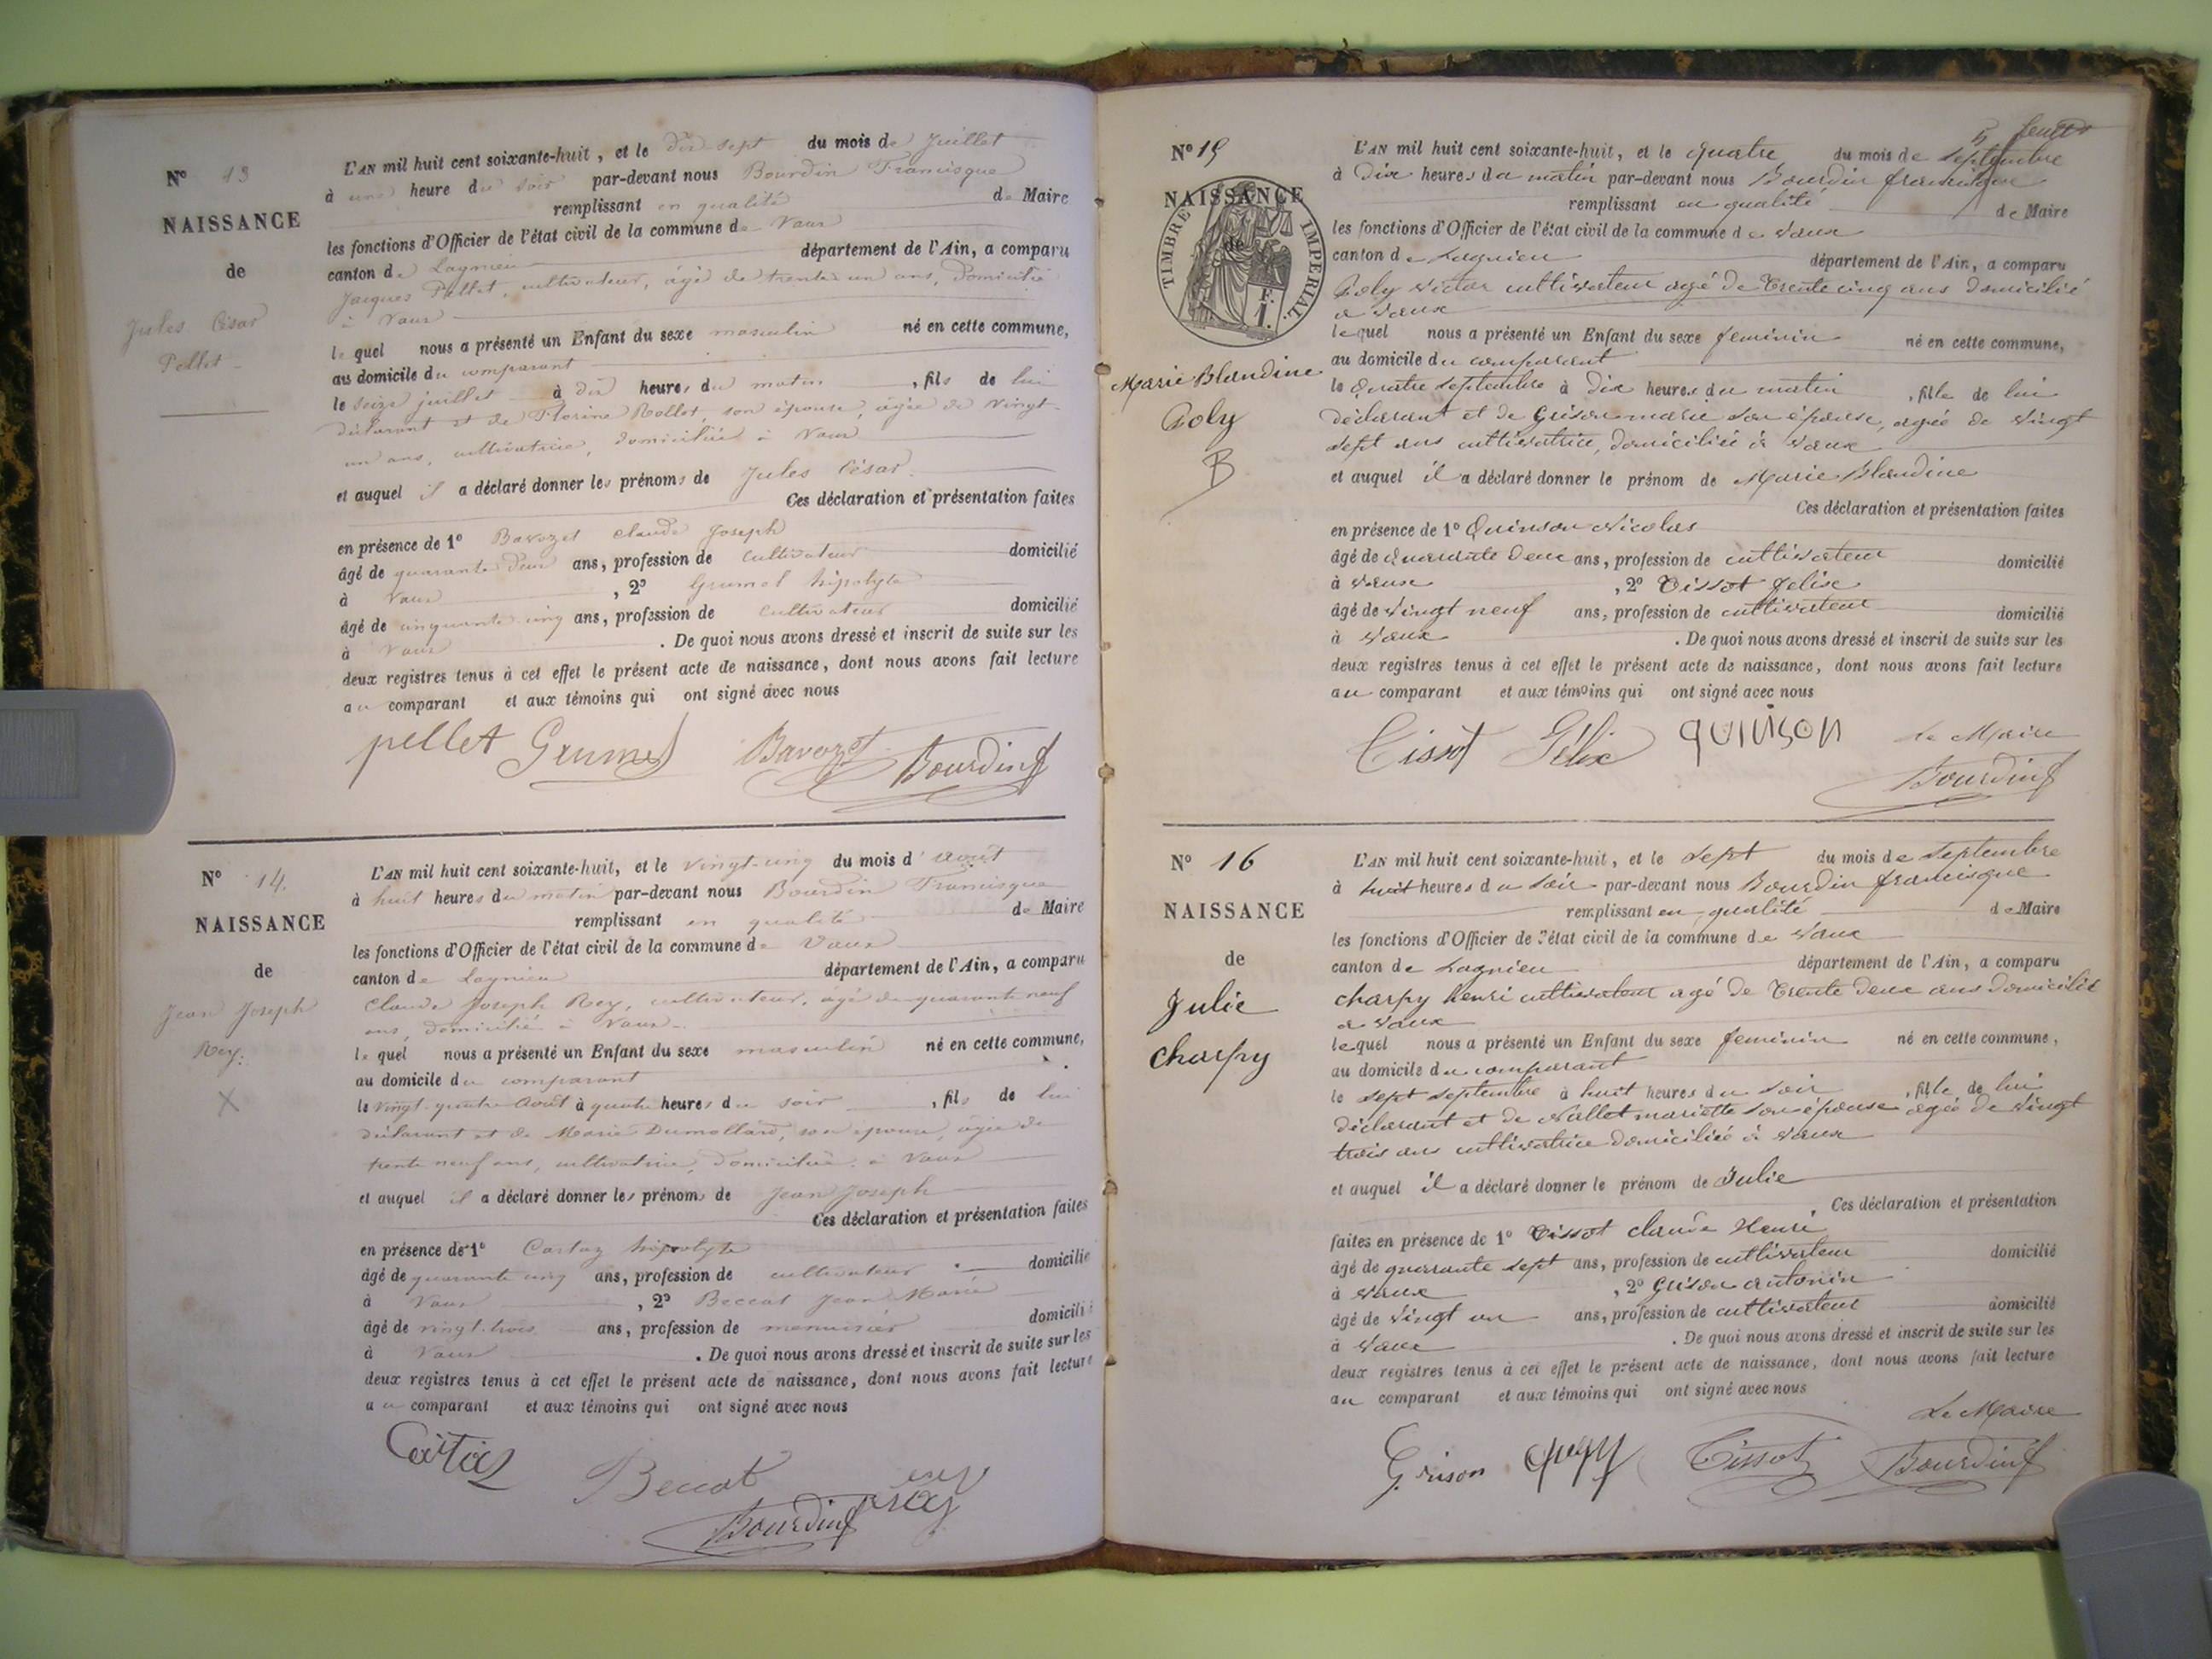 N° 13
NAISSANCE
de
Jules César
Pellet
L'AN mil huit cent soixante-huit, et le dix sept du mois de Juillet
à une heure du soir par-devant nous Bourdin Francisque
remplissant en qualité de Maire
les fonctions d'Officier de l'état civil de la commune de Vaux
canton de Lagnieu département de l'Ain, a comparu
Jacques Pellet, cultivateur, âgé de trente un ans, domicilié
à Vaux
lequel nous a présenté un Enfant du sexe masculin né en cette commune,
au domicile du comparant
le seize juillet à dix heures du matin, fils de lui
déclarant et de Florine Rollet, son épouse, âgée de vingt-
un ans, cultivatrice, domiciliée à Vaux
et auquel il a déclaré donner les prénoms de Jules César
Ces déclaration et présentation faites
en présence de 1° Bavozet Claude Joseph
âgé de quarante deux ans, profession de cultivateur domicilié
à Vaux, 2° Grumel hipolyte
âgé de cinquante cinq ans, profession de cultivateur domicilié
à Vaux. De quoi nous avons dressé et inscrit de suite sur les
deux registres tenus à cet effet le présent acte de naissance, dont nous avons fait lecture
au comparant et aux témoins qui ont signé avec nous
pellet Grumel Bavozet Bourdin f
N° 14.
NAISSANCE
de
Jean Joseph
Rey.
X
L'AN mil huit cent soixante-huit, et le vingt-cinq du mois d'août
à huit heures du matin par-devant nous Bourdin Francisque
remplissant en qualité de Maire
les fonctions d'Officier de l'état civil de la commune de Vaux
canton de Lagnieu département de l'Ain, a comparu
Claude Joseph Rey, cultivateur, âgé de quarante neuf
ans, domicilié à Vaux
lequel nous a présenté un Enfant du sexe masculin né en cette commune,
au domicile du comparant
le vingt-quatre Août à quatre heures du soir, fils de lui
déclarant et de Marie Dumollard, son épouse, âgée de
trente neuf ans, cultivatrice, domiciliée à Vaux
et auquel il a déclaré donner les prénoms de Jean Joseph
Ces déclaration et présentation faites
en présence de 1° Cartaz hipolyte
âgé de quarante cinq ans, profession de cultivateur domicilié
à Vaux, 2° Beccat Jean Marie
âgé de vingt-trois ans, profession de menuisier domicilié
à Vaux. De quoi nous avons dressé et inscrit de suite sur les
deux registres tenus à cet effet le présent acte de naissance, dont nous avons fait lecture
au comparant et aux témoins qui ont signé avec nous
Cartaz
Beccat
Bourdin f rey
5 feuillet
N° 15
NAISSANCE
de
TIMBRE IMPERIAL.
F.
1.
Marie Blandine
Poly
B
L'AN mil huit cent soixante-huit, et le quatre du mois de septembre
à dix heures du matin par-devant nous Bourdin francisque
remplissant en qualité de Maire
les fonctions d'Officier de l'état civil de la commune de Vaux
canton de Lagnieu département de l'Ain, a comparu
Poly victor cultivateur agé de trente cinq ans domicilié
a Vaux
lequel nous a présenté un Enfant du sexe feminin né en cette commune,
au domicile du comparant
le quatre septembre à dix heures du matin, fille de lui
déclarant et de Grison marie son épouse, agée de vingt
sept ans cultivatrice, domiciliée à Vaux
et auquel il a déclaré donner le prénom de Marie Blandine
Ces déclaration et présentation faites
en présence de 1° Quinson Nicolas
âgé de quarante deux ans, profession de cultivateur domicilié
à Vaux, 2° Tissot felix
âgé de vingt neuf ans, profession de cultivateur domicilié
à Vaux. De quoi nous avons dressé et inscrit de suite sur les
deux registres tenus à cet effet le présent acte de naissance, dont nous avons fait lecture
au comparant et aux témoins qui ont signé avec nous
Tissot Félix quinson Le Maire
Bourdin f
N° 16
NAISSANCE
de
Julie
charpy
L'AN mil huit cent soixante-huit, et le sept du mois de septembre
à huit heures du soir par-devant nous Bourdin francisque
remplissant en qualité de Maire
les fonctions d'Officier de l'état civil de la commune de Vaux
canton de Lagnieu département de l'Ain, a comparu
charpy henri cultivateur agé de trente deux ans domicilié
a Vaux
lequel nous a présenté un Enfant du sexe feminin né en cette commune,
au domicile du comparant
le sept septembre à huit heures du soir, fille de lui
déclarant et de Nallet mariette son épouse agée de vingt
trois ans cultivatrice domiciliée à Vaux
et auquel il a déclaré donner le prénom de Julie
Ces déclaration et présentation
faites en présence de 1° Tissot claude Henri
âgé de quarante sept ans, profession de cultivateur domicilié
à Vaux, 2° Grison antonin
âgé de vingt un ans, profession de cultivateur domicilié
à Vaux. De quoi nous avons dressé et inscrit de suite sur les
deux registres tenus à cet effet le présent acte de naissance, dont nous avons fait lecture
au comparant et aux témoins qui ont signé avec nous
Le Maire
Grison Tissot Bourdin f